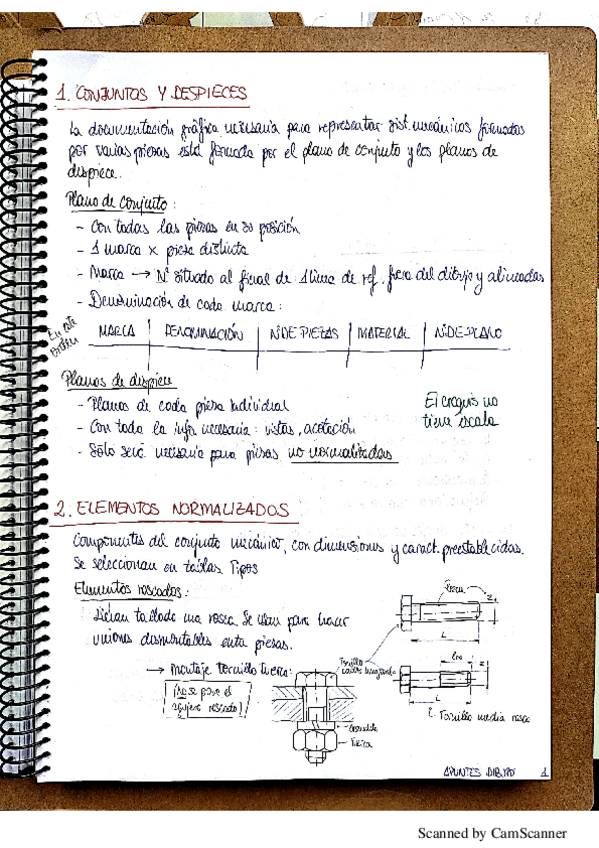 1. CONJUNTOS Y DESPIECES
La documentación gráfica necesaria para representar sist. mecánicos formados
por varias piezas está formada por el plano de conjunto y los planos de
despiece.
Plano de conjunto:
- Con todas las piezas en su posición
- 1 marca x pieza distinta
- Marca → Nº situado al final de 1 línea de ref. fuera del dibujo y alineadas
- Denominación de cada marca:
En este orden
MARCA | DENOMINACIÓN | Nº DE PIEZAS | MATERIAL | Nº DE PLANO
Planos de despiece
- Planos de cada pieza individual
- Con toda la info necesaria: vistas, acotación
- Sólo será necesaria para piezas no normalizadas
El croquis no
tiene escala
2. ELEMENTOS NORMALIZADOS
Componentes del conjunto mecánico, con dimensiones y caract. preestablecidas.
Se seleccionan en tablas Tipos
Elementos roscados:
tallado una rosca. Se usan para hacer
uniones desmontables entre piezas.
→ Montaje tornillo tuerca:
¡No se pone el
agujero roscado!
Rosca
L
Tornillo
L
Tornillo media rosca
Arandela
Tuerca
APUNTES DIBUJO 1
Scanned by CamScanner